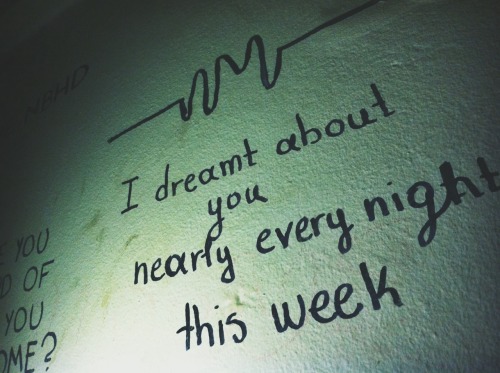 I dreamt about
you
nearly every night
this week
YOU
OF
YOU
OME?